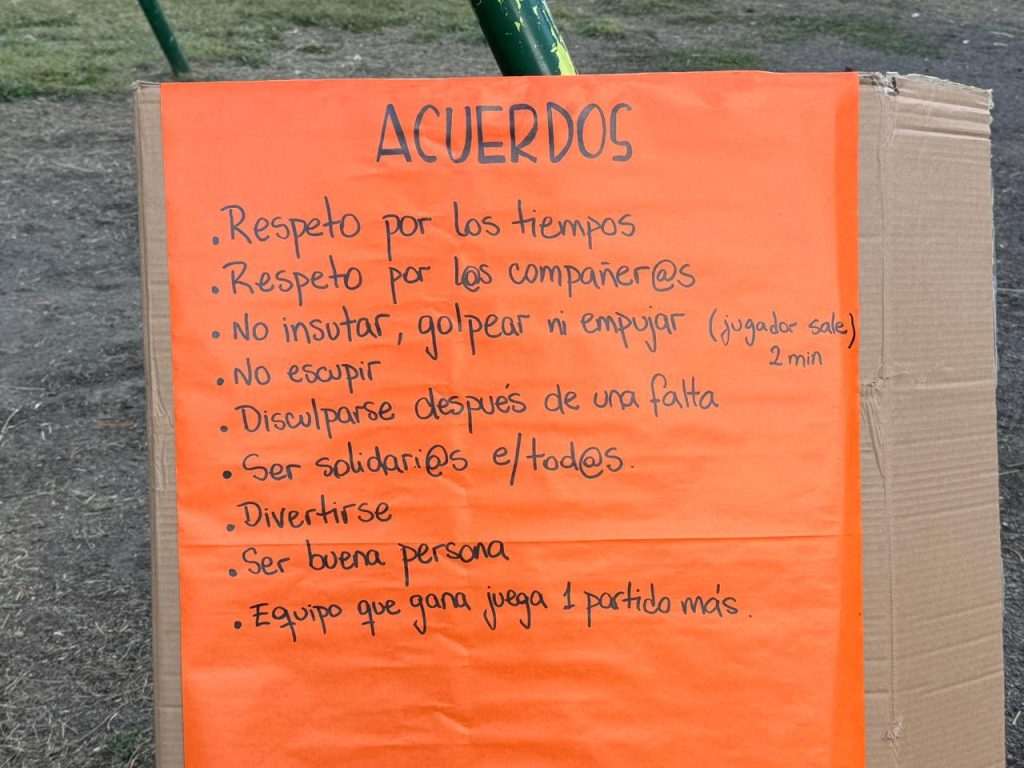 ACUERDOS
. Respeto por los tiempos
. Respeto por l@s compañer@s
. No insutar, golpear ni empujar (jugador sale)
2 min
. No escupir
. Disculparse después de una falta
. Ser solidari@s e/tod@s.
. Divertirse
. Ser buena persona
. Equipo que gana juega 1 partido más.